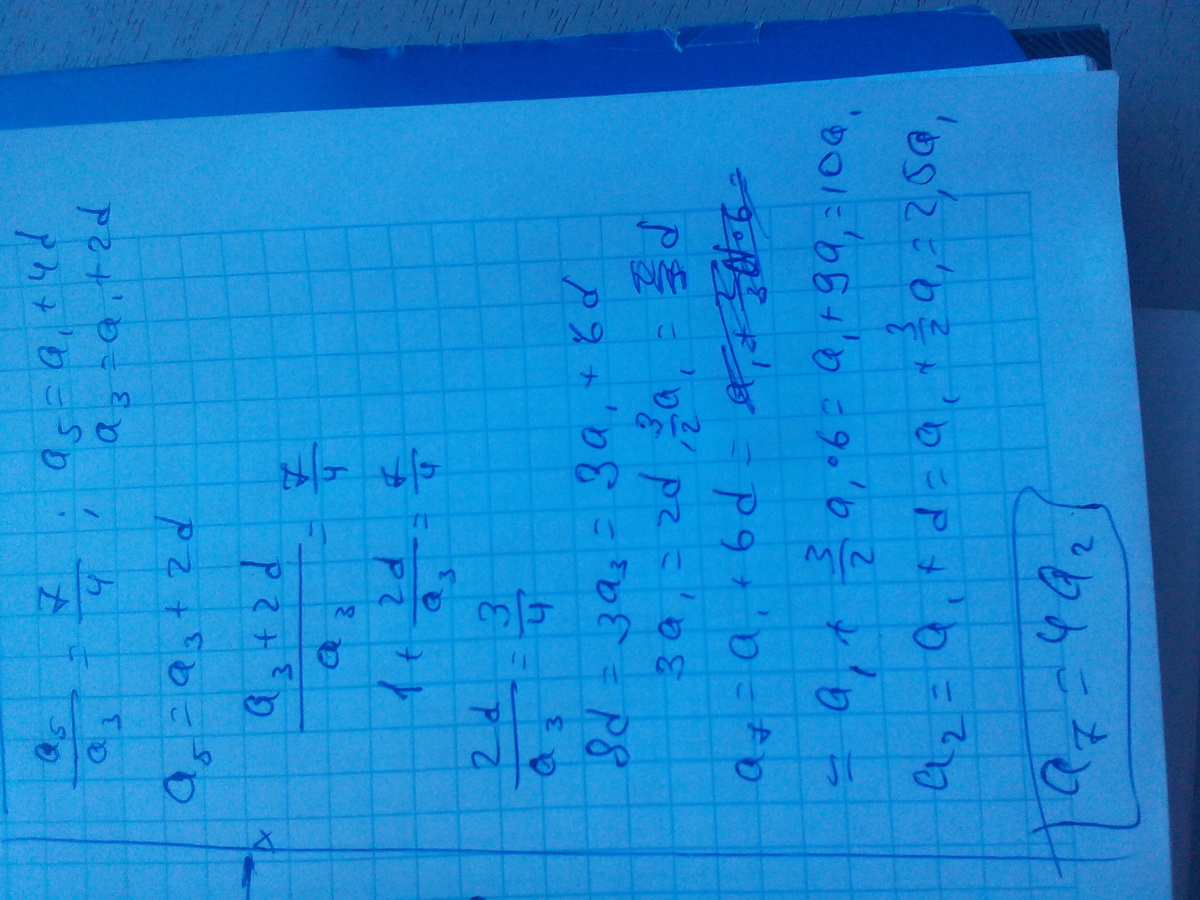 a₅/a₃ = 7/4 ; a₅ = a₁ + 4d
a₃ = a₁ + 2d
a₅ = a₃ + 2d
(a₃ + 2d)/a₃ = 7/4
1 + 2d/a₃ = 7/4
2d/a₃ = 3/4
8d = 3a₃ = 3a₁ + 6d
3a₁ = 2d, 3/2 a₁ = d
a₇ = a₁ + 6d =
= a₁ + 3/2 a₁ · 6 = a₁ + 9a₁ = 10a₁
a₂ = a₁ + d = a₁ + 3/2 a₁ = 2,5a₁
a₇ = 4a₂
x